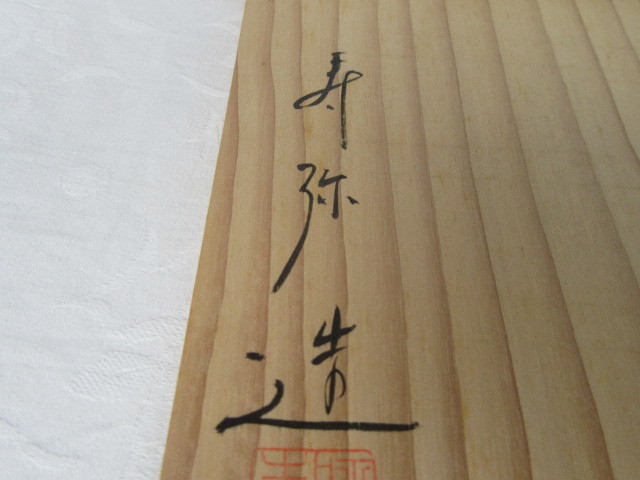 寿弥造